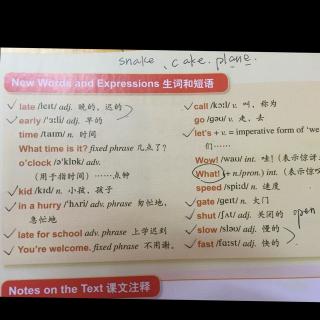 snake、cake. plane.
New Words and Expressions 生词和短语
late /leɪt/ adj. 晚的、迟的
early /'ɜːli/ adj. 早的
time /taɪm/ n. 时间
What time is it? fixed phrase 几点了?
o'clock /ə'klɒk/ adv.
(用于指时间)……点钟
kid /kɪd/ n. 小孩，孩子
in a hurry /'hʌri/ adv. phrase 匆忙地，
急忙地
late for school adv. phrase 上学迟到
You're welcome. fixed phrase 不用谢。
call /kɔːl/ v. 叫，称为
go /gəʊ/ v. 走、去
let's + v. = imperative form of 'we
们……
Wow! /waʊ/ int. 哇! (表示惊讶
What! (+ n./pron.) int. (表示惊
speed /spiːd/ n. 速度
gate /geɪt/ n. 大门
shut /ʃʌt/ adj. 关闭的 open
slow /sləʊ/ adj. 慢的
fast /fɑːst/ adj. 快的
Notes on the Text 课文注释